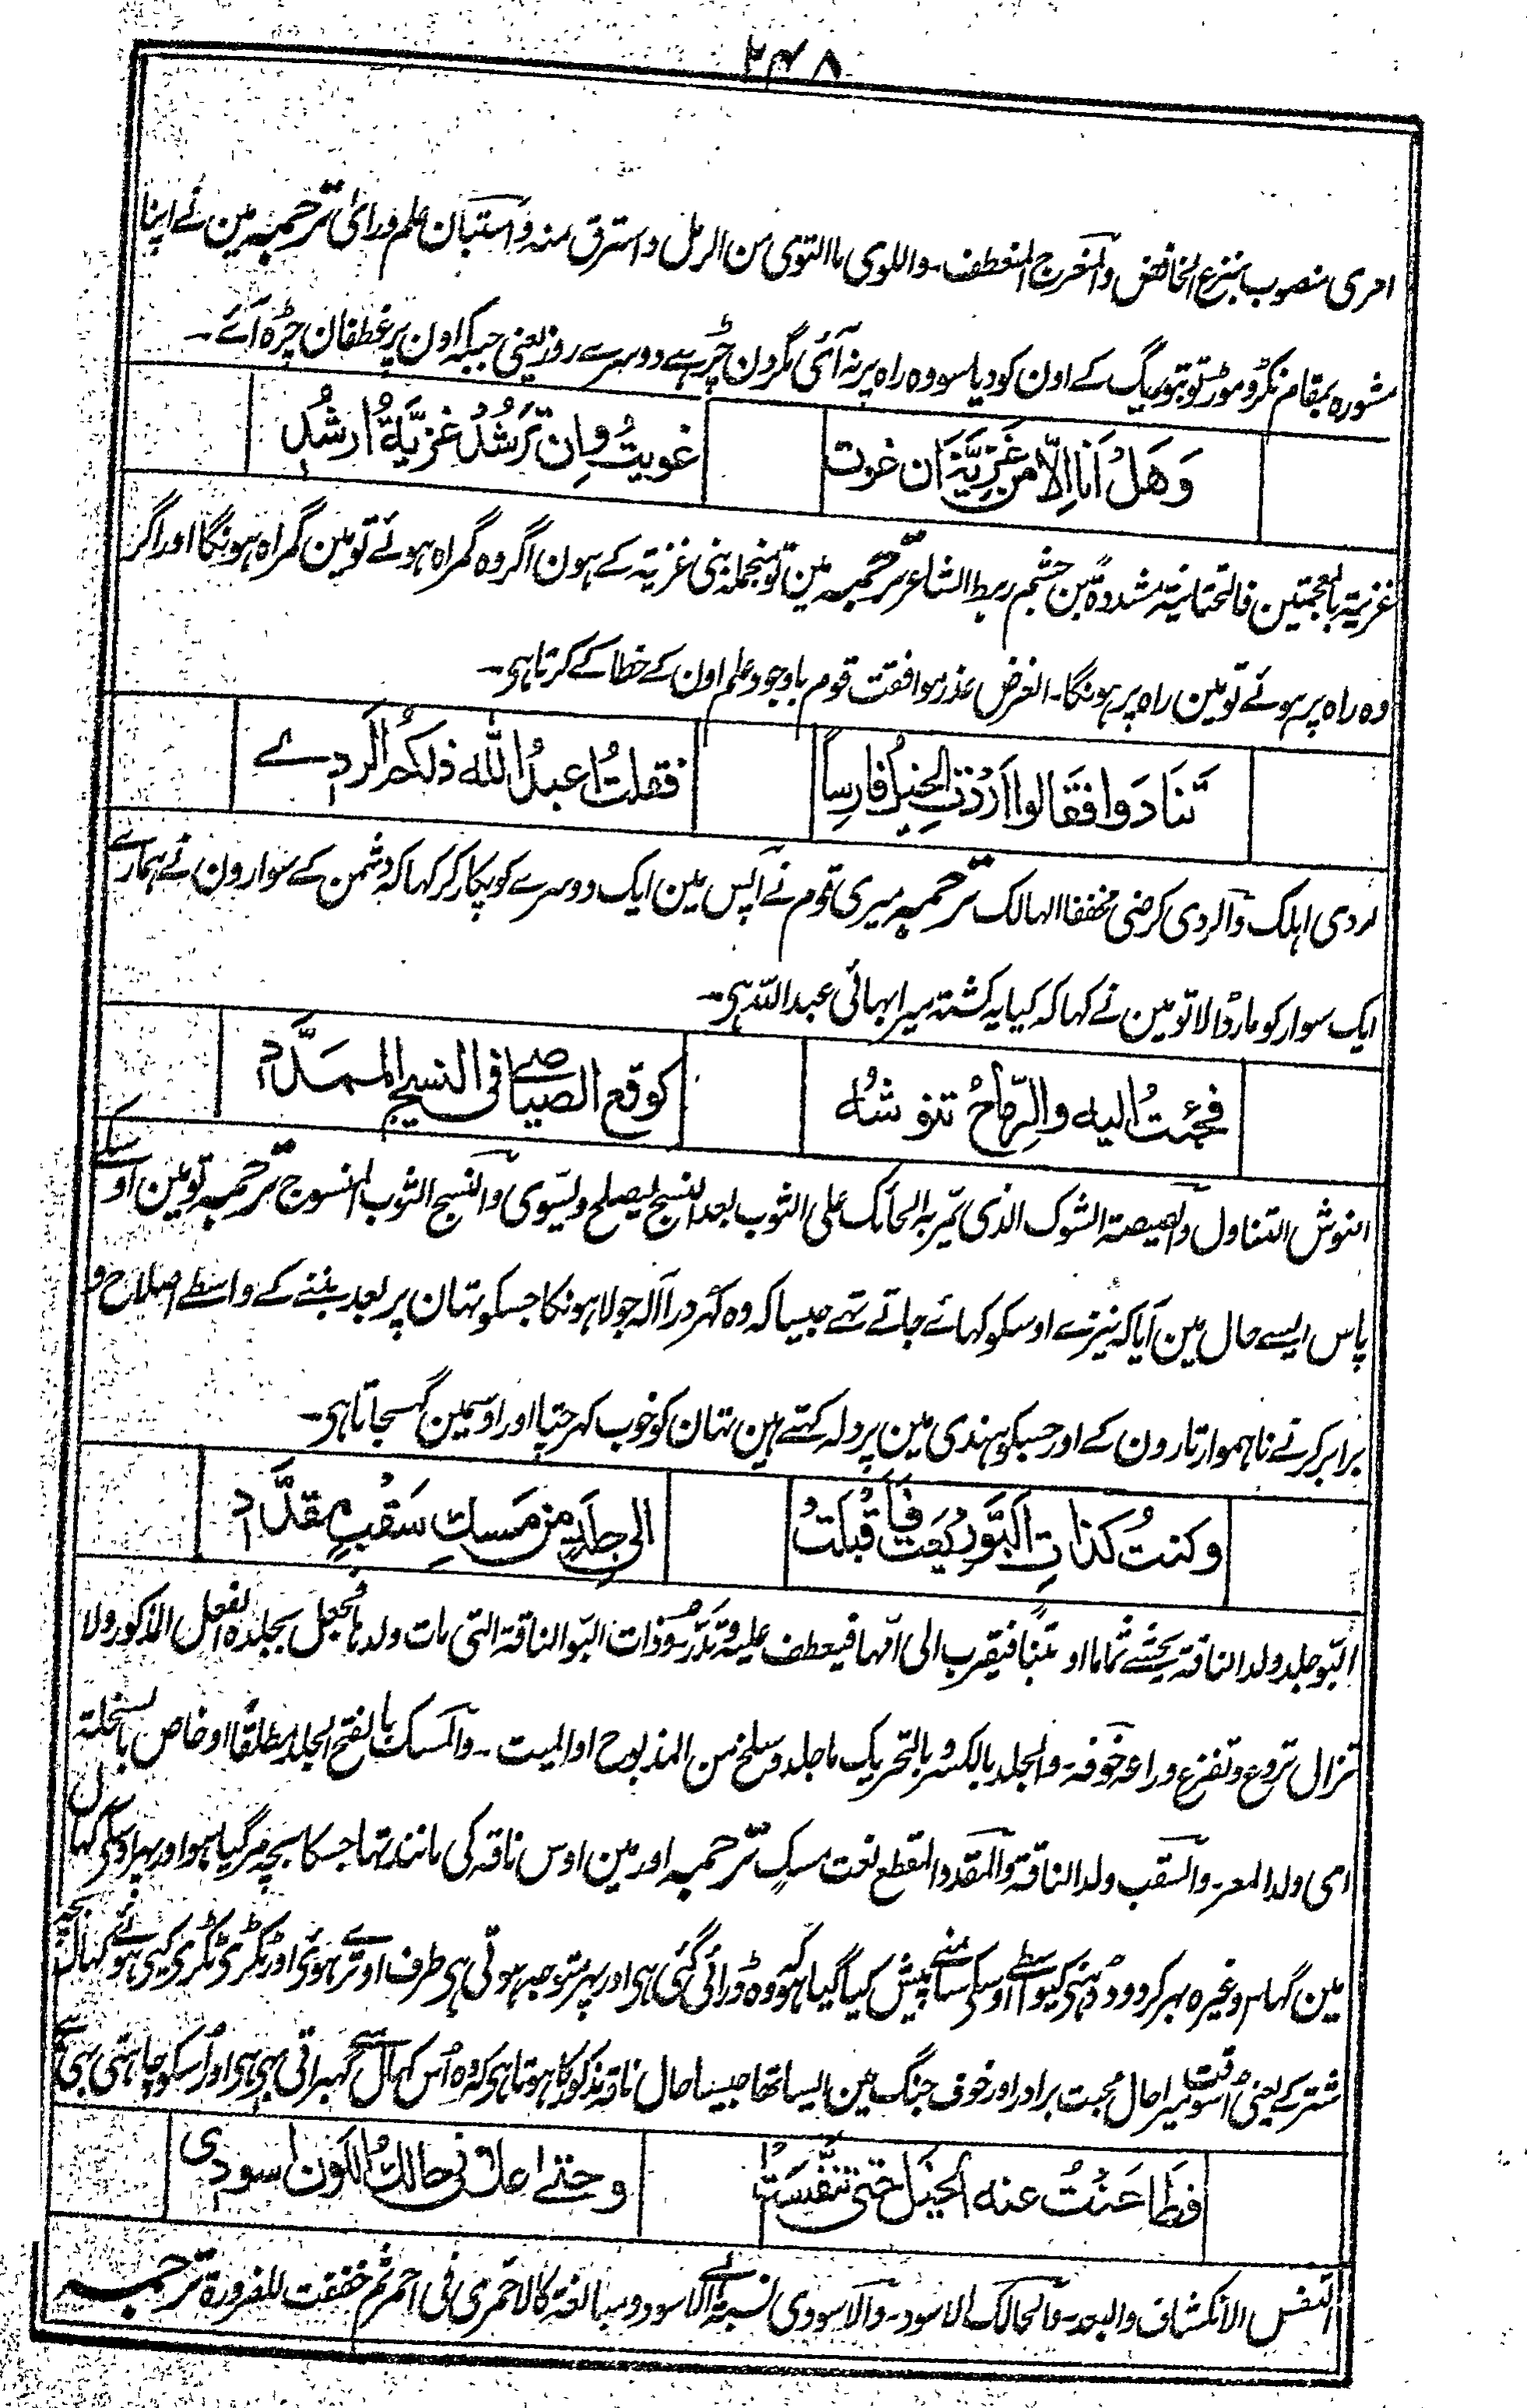 ۲۴۸
امری منصوب بنزع الخافض والمنعرج المنعطف۔ واللوی ما التوی من الرمل واسترق منہ واستبان علم ورائ ترجمہ مین نے اپنا
مشورہ بمقام نکڑ و موڑ تودہ ریگ کے اون کو دیا سو وہ راہ پر نہ آئی مگر دن چڑہے دوسرے روز یعنی جبکہ اون پر غطفان چڑہ آئے۔
وَهَلْ أَنَا اِلَّا مِن غَزِيَّةَ اَن غوت    غويتُ وإن تَرشُدْ غزيَّةُ ارشُدِ
غزیتہ بالمعجمتین فالتحتانیتہ مشددۃ بن جشم رہط الشاعر ترجمہ مین تو منجملہ بنی غزیتہ کے ہون اگر وہ گمراہ ہوئے تو مین گمراہ ہونگا اور اگر
وہ راہ پر ہوئے تو مین راہ پر ہونگا۔ الغرض عذر موافقت قوم باوجود علم اون کے خطا کے کرتا ہی۔
تَنَادَوا فقَالوا اَرْدَتِ الخيلُ فارِساً    فقلتُ اعبدُ الله ذلكمُ الردِے
اردی اہلک والردی کرضی مخففا الہالک ترجمہ میری قوم نے آپس مین ایک دوسرے کو پکار کر کہا کہ دشمن کے سوارون نے ہمارے
ایک سوار کو مار ڈالا تو مین نے کہا کہ کیا یہ کشتہ میرا بہائی عبد اللہ ہی۔
فجئتُ اليه والرِّماحُ تنوشُه    كوقع الصياصے فى النسيج الممدَّدِ
النوش التناول والصیصتہ الشوک الذی یمر بہ الحائک علی الثوب بعد النسج لیصلح ویسوی والنسیج الثوب المنسوج ترجمہ تو مین اوسکے
پاس ایسے حال مین آیا کہ نیزے اوسکو کہائے جاتے تہے جیسا کہ وہ کہردرا آلہ جولاہونکا جسکو تہان پر بعد بننے کے واسطے اصلاح و
برابر کرنے ناہموار تارون کے اور جسکو ہندی مین پردلہ کہتے ہین تہان کو خوب کہرچتا اور اوسمین گہسجاتا ہی۔
وكنتُ كذاتِ البَوِّ رِيعَت فَاَقْبَلَتْ    الى جلَدٍ من مَسكِ سَقْبٍ مقدَّدِ
البوّ جلد ولد الناقۃ یحشے ثماما او تبنا فیقرب الی امہا فیعطف علیہ وتدر۔ وذات البو الناقۃ التی مات ولدہا فجعل بجلدہ الفعل المذکور ولا
تزال تروع وتفزع وراعہ خوفہ۔ والجلد بالکسر و بالتحریک ما جلد وسلخ من المذبوح او المیت۔ والمسک بالفتح الجلد مطلقا او خاص بالسخلۃ
ای ولد المعز۔ والسقب ولد الناقۃ والمقدد المقطع نعت مسک ترجمہ اور مین اوس ناقہ کی مانند تہا جسکا بچہ مرگیا ہو اور پہر اوسکی کہال
مین گہاس وغیرہ بہر کر دودہ دہنی کیواسطے اوسکی سامنے پیش کیا گیا ہو کہ وہ ڈرائی گئی ہی اور پہر متوجہ ہوتی ہی طرف اوتری ہوئی اور ٹکڑی ٹکڑی کیی ہوئے کہال بچہ
شتر کے یعنی اسوقت میرا حال محبت برادر اور خوف جنگ مین ایسا تہا جیسا حال ناقہ مذکور کا ہوتا ہی کہ وہ اُس کہال سے گہبراتی بہی ہی اور اُسکو چاہتی بہی ہے
فطَاعَنْتُ عنه الخيلَ حتى تنَفَّسَتْ    وحتے اعلانى حالكُ اللون اسودى
النفس الانکشاف والبعد۔ والحالک الاسود۔ والاسودی نسبۃ الی الاسود ومبالغۃ کالاحمری فی احمر ثم خففت للضرورۃ ترجمہ